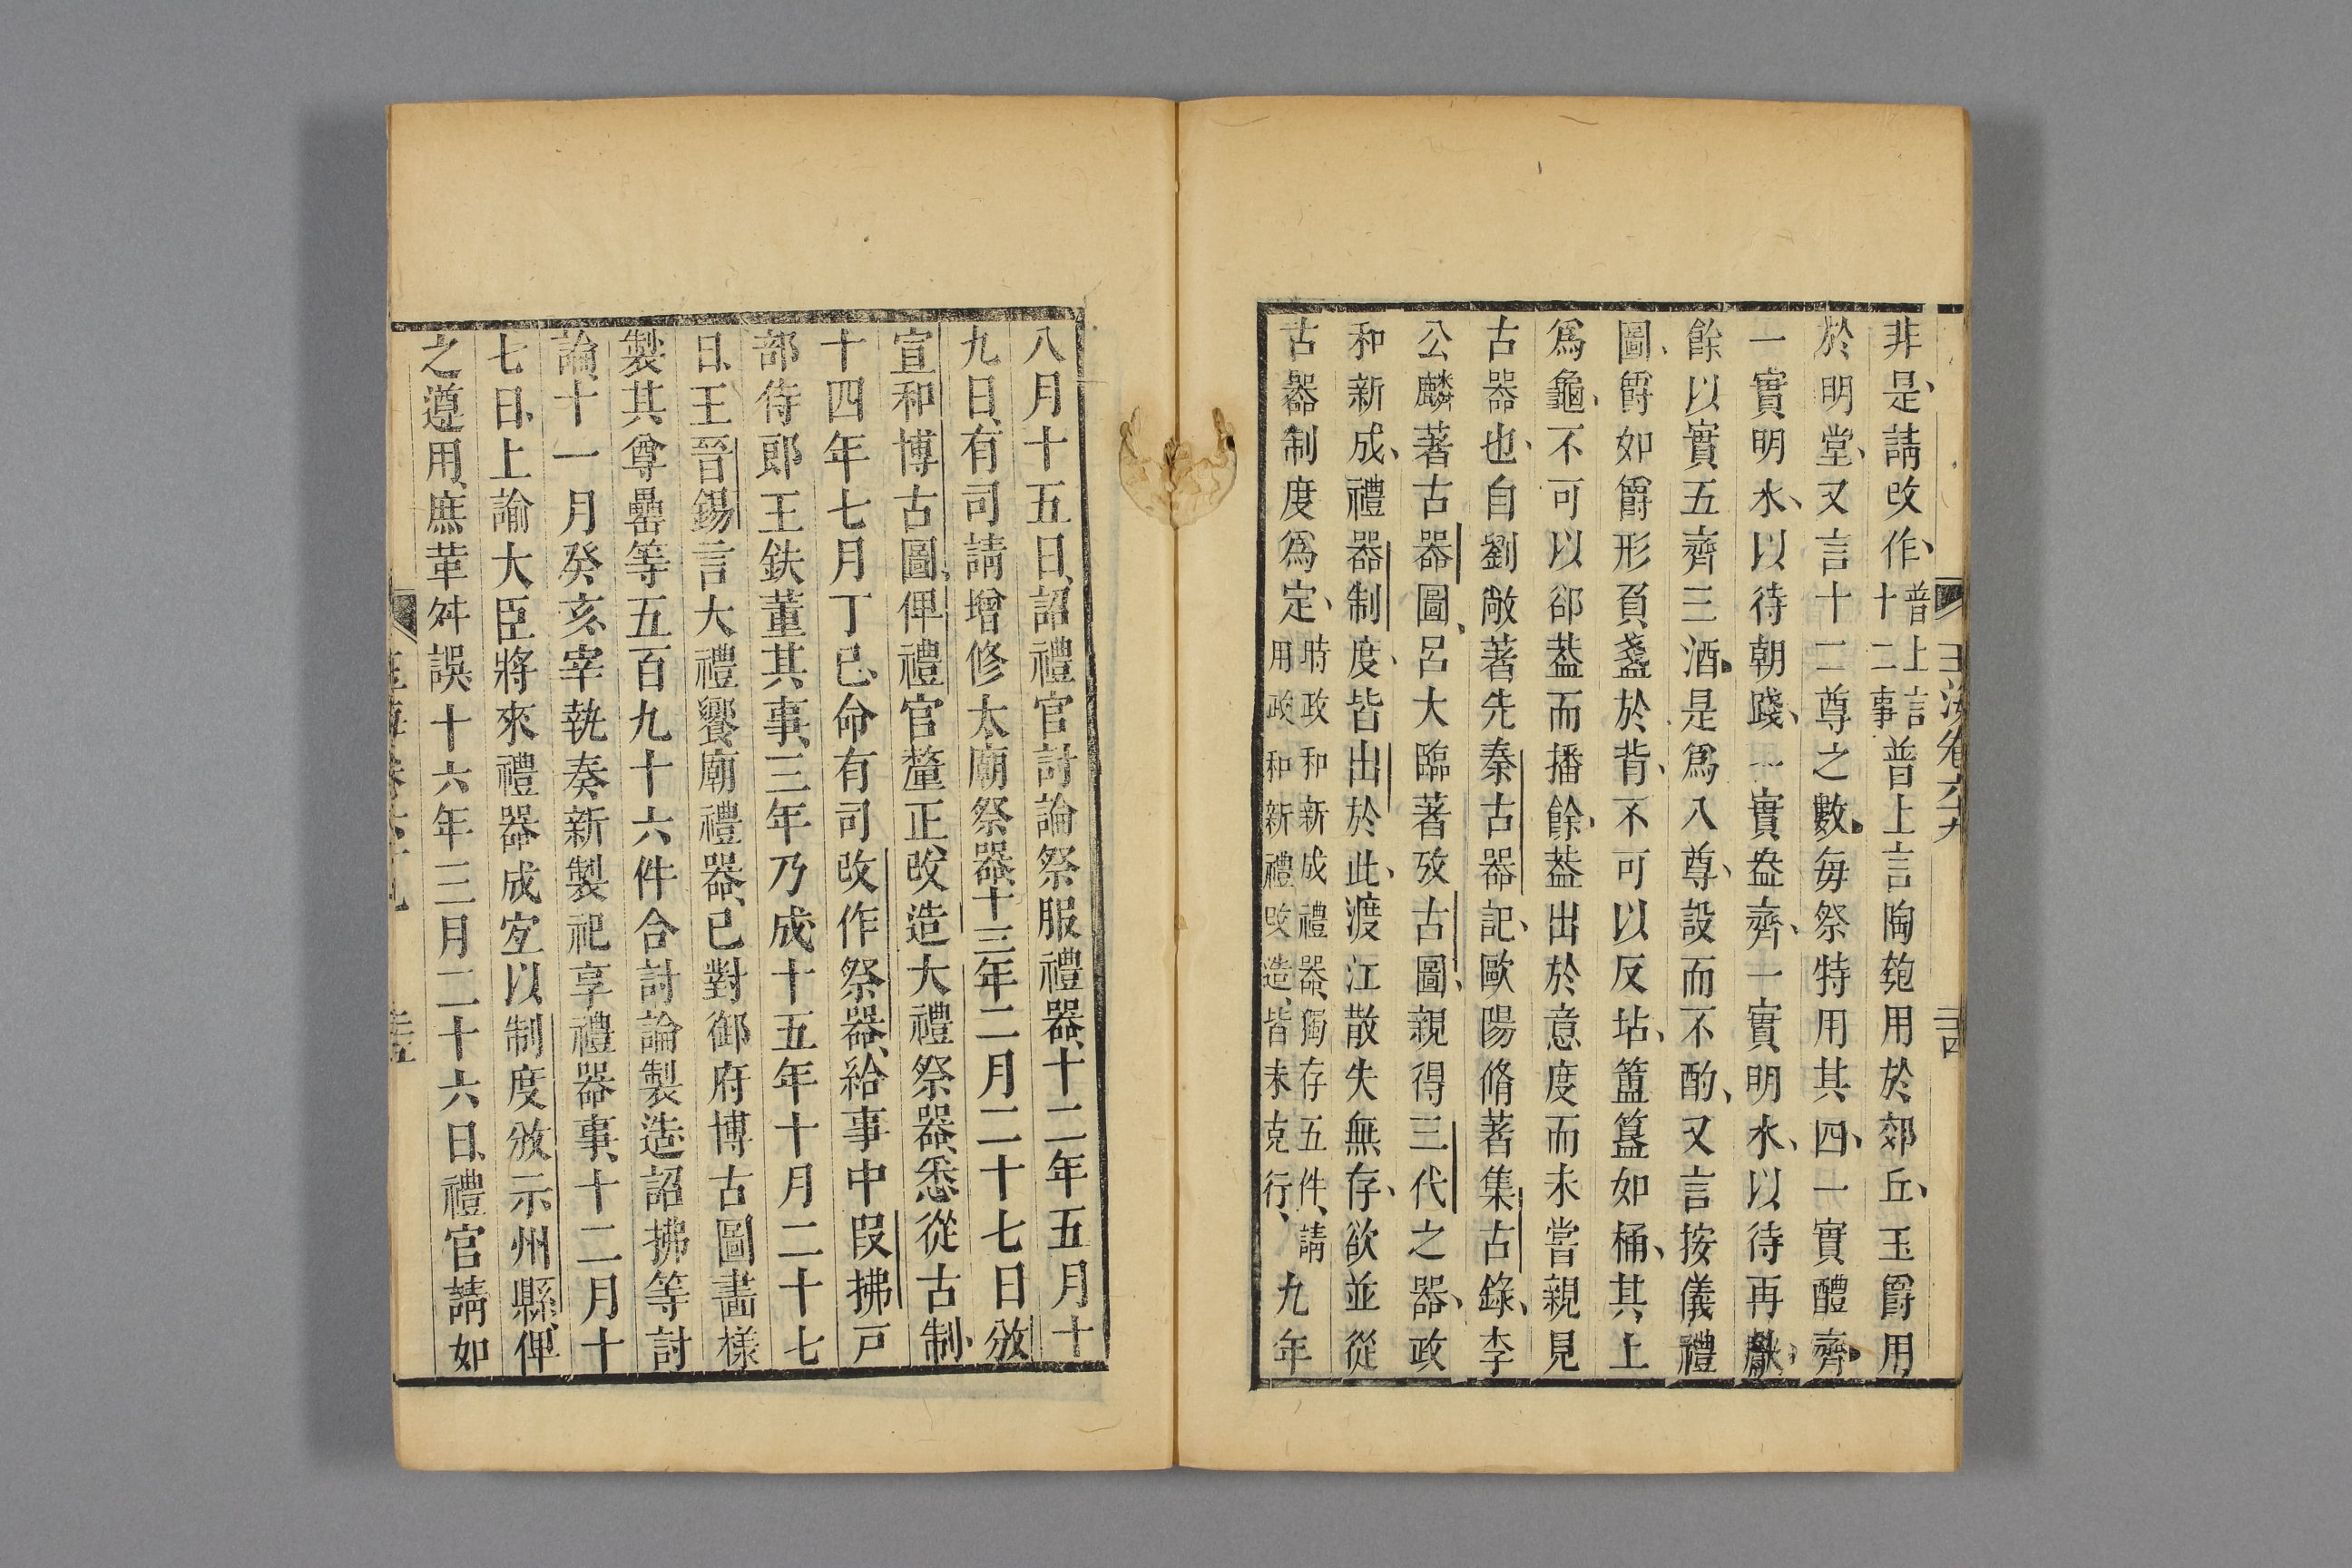 玉海卷六十九
非是、請改作、普上言十二事普上言陶匏用於郊丘、玉爵用
於明堂、又言十二尊之數、每祭特用其四、一實醴齊、
一實明水、以待朝踐、一實盎齊、一實明水、以待再獻、
餘以實五齊三酒、是爲八尊、設而不酌、又言按儀禮
圖、爵如爵形負盞於背、不可以反坫、簠簋如桶、其上
爲龜、不可以郤葢而播餘、葢出於意度而未嘗親見
古器也、自劉敞著先秦古器記、歐陽脩著集古錄、李
公麟著古器圖、呂大臨著攷古圖、親得三代之器、政
和新成、禮器制度、皆出於此、渡江散失無存、欲並從
古器制度爲定、時政和新成禮器、獨存五件、請用政和新禮改造、皆未克行、九年
八月十五日、詔禮官討論祭服禮器、十二年五月十
九日、有司請增修太廟祭器、十三年二月二十七日放
宣和博古圖、俾禮官釐正、改造大禮祭器、悉從古制、
十四年七月丁巳、命有司改作祭器、給事中段拂戸
部侍郎王鈇董其事、三年乃成、十五年十月二十七
日、王晉錫言大禮饗廟禮器、已對御府博古圖畫樣
製其尊罍等五百九十六件合討論製造詔拂等討
論、十一月癸亥、宰執奏新製祀享禮器事、十二月十
七日、上諭大臣將來禮器成宐以制度放示州縣、俾
之遵用、庶革舛誤十六年三月二十六日、禮官請如